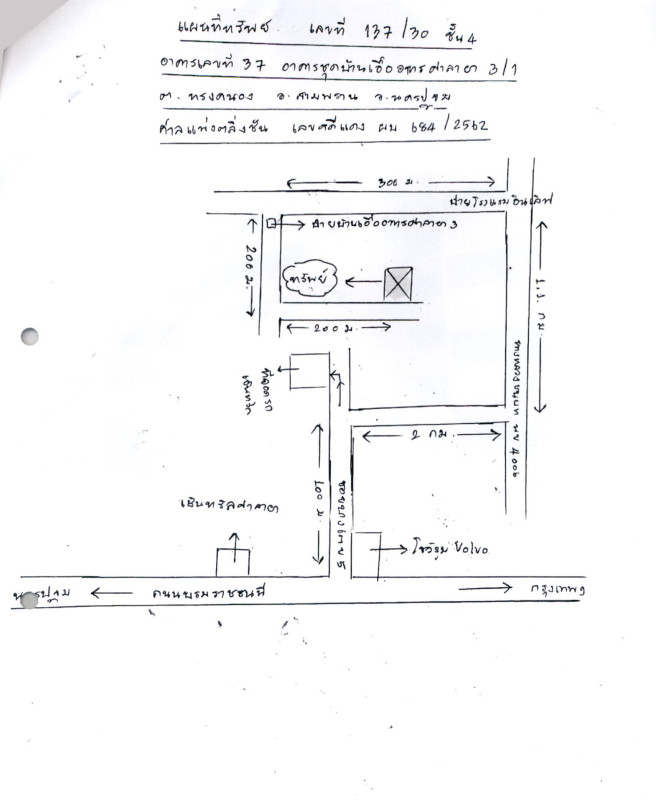 แผนที่ทรัพย์ เลขที่ 137/30 ชั้น 4
อาคารเลขที่ 37 อาคารชุดบ้านเอื้ออาทรศาลายา 3/1
ต. ทรงคนอง อ. สามพราน จ. นครปฐม
ศาลแพ่งตลิ่งชัน เลขคดีแดง ผบ 684/2562
300 ม.
ป้ายโรงแรมอินเลิฟ
ป้ายบ้านเอื้ออาทรศาลายา 3
200 ม.
ทรัพย์
1.5 กม.
200 ม.
ทางหลวงชนบท นฐ 4006
ที่จอดรถ
เซ็นทรัล
2 กม.
100 ม.
ซอยบางเตย 5
เซ็นทรัลศาลายา
โชว์รูม Volvo
นครปฐม
ถนนบรมราชชนนี
กรุงเทพฯ